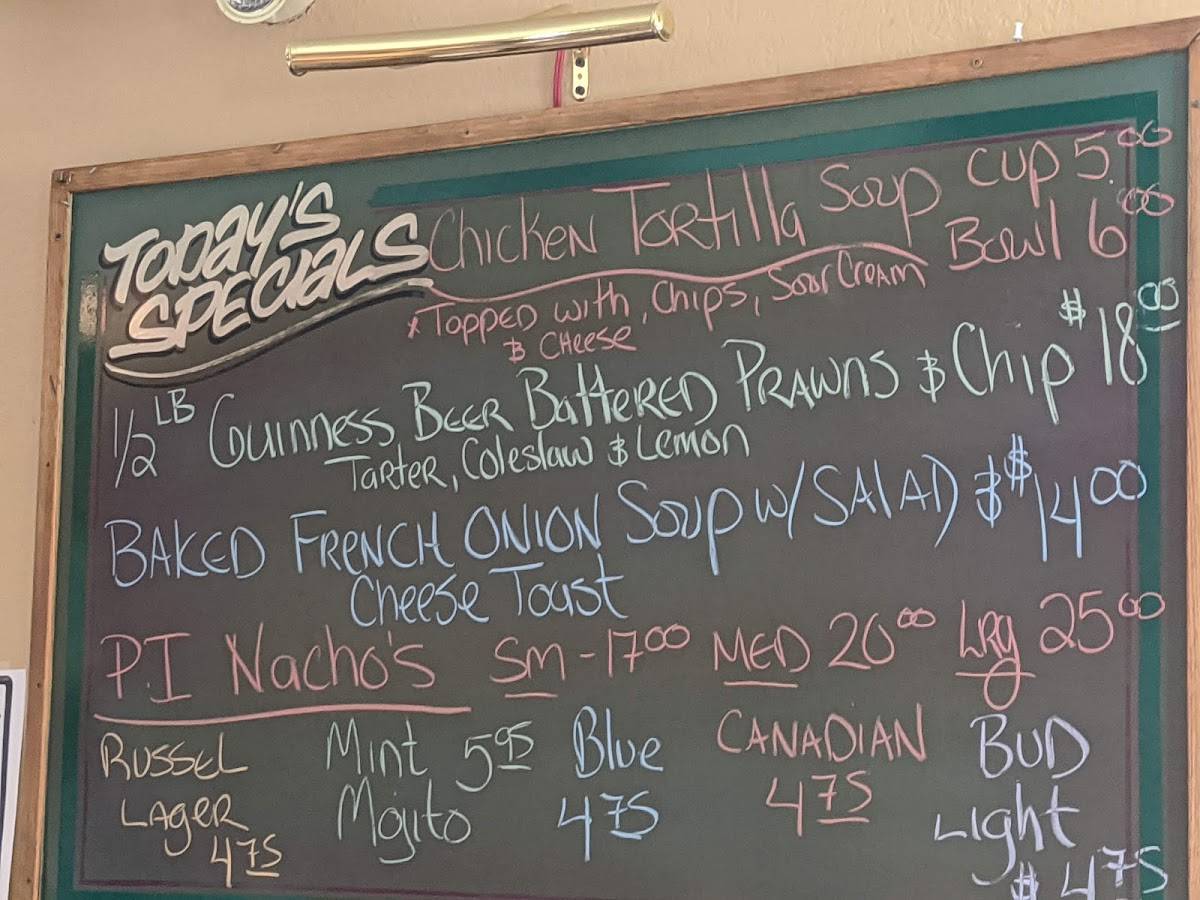 TODAY'S
SPECIALS
Chicken Tortilla Soup CUP 5.00
Bowl 6.00
* Topped with, Chips, Sour Cream
& Cheese
1/2 LB Guinness Beer Battered Prawns & Chip $18.00
Tarter, Coleslaw & Lemon
BAKED FRENCH ONION Soup w/ SALAD & $14.00
Cheese Toast
P.I Nacho's Sm - 17.00 MED 20.00 Lrg 25.00
Russel Mint 5.95 Blue CANADIAN BUD
LAGER Mojito 4.75 4.75 Light
4.75 $4.75